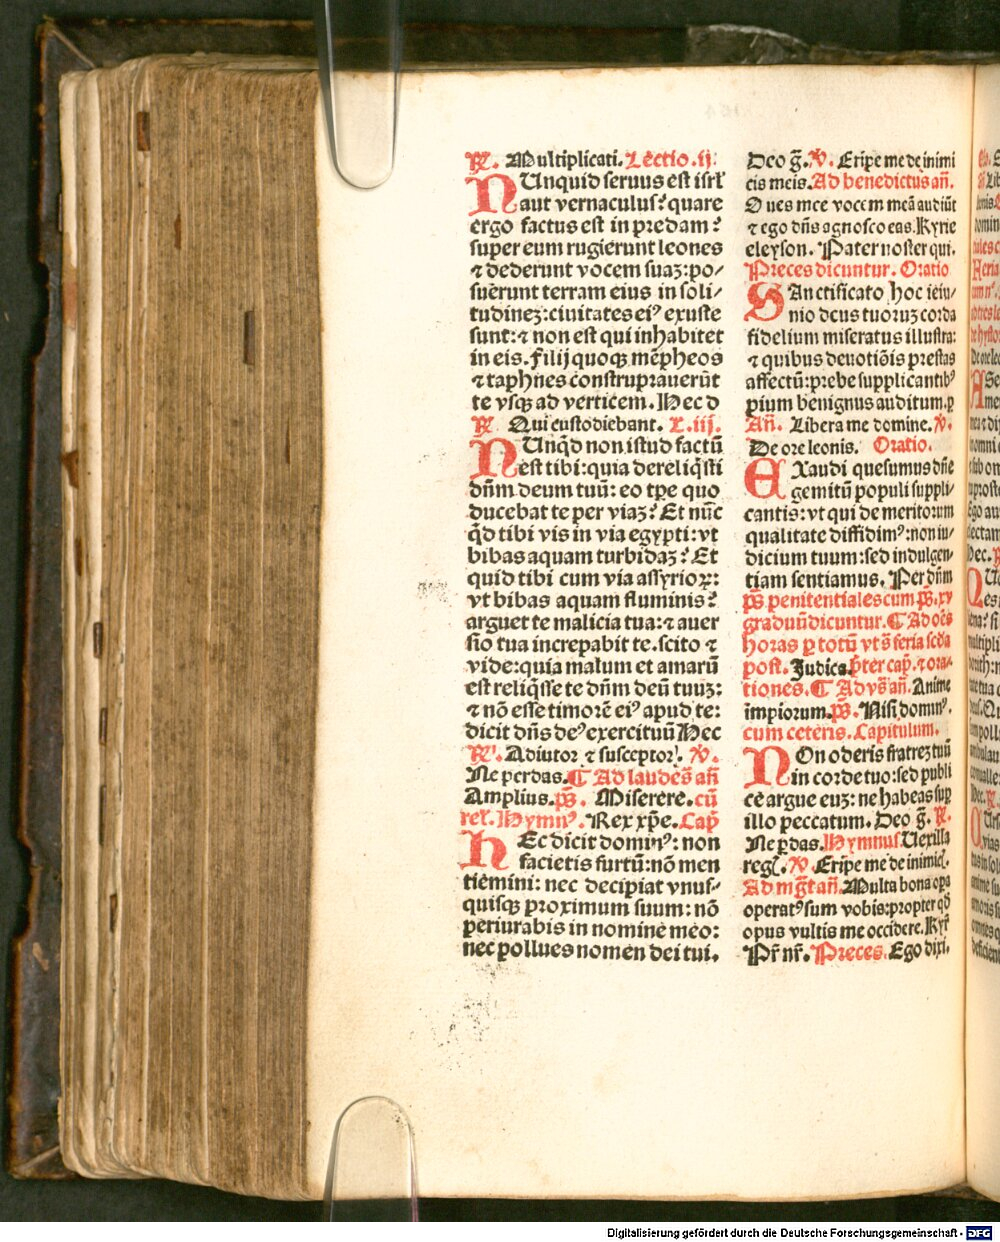 ℟. Multiplicati. Lectio .ij.
NUnquid seruus est isrl̄
aut vernaculus? quare
ergo factus est in predam?
super eum rugierunt leones
⁊ dederunt vocem suaꝫ: po/
suerunt terram eius in soli/
tudineꝫ: ciuitates eiꝰ exuste
sunt: ⁊ non est qui inhabitet
in eis. Filij quoqꝫ mēpheos
⁊ taphnes construprauerūt
te vsqꝫ ad verticem. Hec d
℟ Qui custodiebant. L. iij.
NUnqd̄ non istud factū
est tibi: quia dereliq̄sti
dn̄m deum tuū: eo tp̄e quo
ducebat te per viaꝫ? Et nūc
qd̄ tibi vis in via egypti: vt
bibas aquam turbidaꝫ? Et
quid tibi cum via assyrioꝝ:
vt bibas aquam fluminis?
arguet te malicia tua: ⁊ auer
sio tua increpabit te. scito ⁊
vide: quia malum et amarū
est reliq̄sse te dn̄m deū tuuꝫ:
⁊ nō esse timorē eiꝰ apud te:
dicit dn̄s deꝰ exercituū Hec
℟. Adiutor ⁊ susceptor. ℣.
Ne perdas. ¶ Ad laudes añ
Amplius. ps̄. Miserere. cū
rel. Hymnꝰ. Rex xp̄e. Cap̄
HEc dicit dominꝰ: non
facietis furtū: nō men
tiemini: nec decipiat vnus/
quisqꝫ proximum suum: nō
periurabis in nomine meo:
nec pollues nomen dei tui.
Deo g̃. ℣. Eripe me de inimi
cis meis. Ad benedictus añ.
Oues mee vocem meā audiūt
⁊ ego dn̄s agnosco eas. Kyrie
eleyson. Pater noster qui.
Preces dicuntur. Oratio
SAnctificato hoc ieiu/
nio deus tuoruꝫ corda
fidelium miseratus illustra:
⁊ quibus deuotiōis prestas
affectū: prebe supplicantibꝰ
pium benignus auditum. ꝑ
Añ. Libera me domine. ℣.
De ore leonis. Oratio.
EXaudi quesumus dn̄e
gemitū populi suppli/
cantis: vt qui de meritorum
qualitate diffidimꝰ: non iu/
dicium tuum: sed indulgen/
tiam sentiamus. Per dn̄m
ps̄ penitentiales cum ps̄. xv
graduū dicuntur. ¶ Ad oēs
horas ꝑ totū vt s̄ feria scd̄a
post. Judica. p̄ter cap̄. ⁊ ora/
tiones. ¶ Ad vs̄ añ. Anime
impiorum. ps̄. Nisi dominꝰ.
cum ceteris. Capitulum.
NOn oderis fratreꝫ tuū
in corde tuo: sed publi
ce argue euꝫ: ne habeas suꝑ
illo peccatum. Deo g̃. ℟.
Ne ꝑdas. Hymnus. Vexilla
reg̃. ℣. Eripe me de inimic̃.
Ad mg̃t añ. Multa bona opa
operatꝰ sum vobis: propter qd̄
opus vultis me occidere. Kyr̄
Pr̄ nr̄. Preces. Ego dixi.
Digitalisierung gefördert durch die Deutsche Forschungsgemeinschaft - DFG